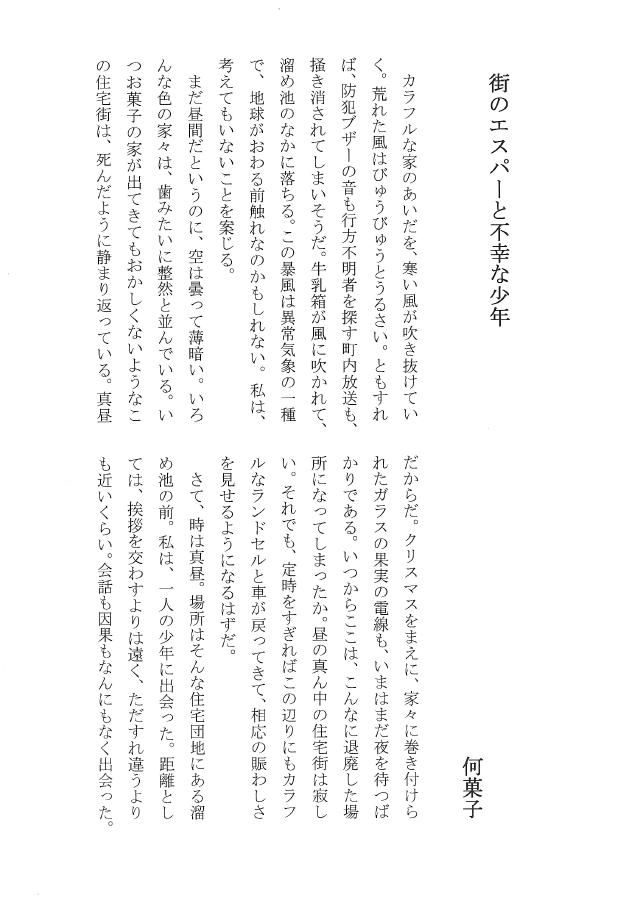 街のエスパーと不幸な少年
何菓子
カラフルな家のあいだを、寒い風が吹き抜けてい
く。荒れた風はびゅうびゅうとうるさい。ともすれ
ば、防犯ブザーの音も行方不明者を探す町内放送も、
掻き消されてしまいそうだ。牛乳箱が風に吹かれて、
溜め池のなかに落ちる。この暴風は異常気象の一種
で、地球がおわる前触れなのかもしれない。私は、
考えてもいないことを案じる。
まだ昼間だというのに、空は曇って薄暗い。いろ
んな色の家々は、歯みたいに整然と並んでいる。い
つお菓子の家が出てきてもおかしくないようなこ
の住宅街は、死んだように静まり返っている。真昼
だからだ。クリスマスをまえに、家々に巻き付けら
れたガラスの果実の電線も、いまはまだ夜を待つば
かりである。いつからここは、こんなに退廃した場
所になってしまったか。昼の真ん中の住宅街は寂し
い。それでも、定時をすぎればこの辺りにもカラフ
ルなランドセルと車が戻ってきて、相応の賑わしさ
を見せるようになるはずだ。
さて、時は真昼。場所はそんな住宅団地にある溜
め池の前。私は、一人の少年に出会った。距離とし
ては、挨拶を交わすよりは遠く、ただすれ違うより
も近いくらい。会話も因果もなんにもなく出会った。